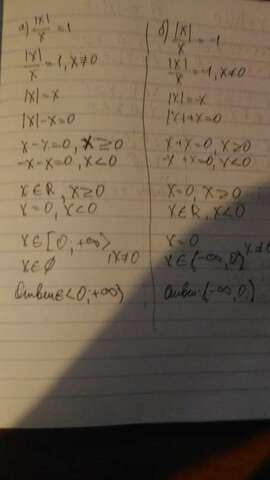 а) |x|/x = 1
|x|/x = 1, x≠0
|x| = x
|x|-x=0
x-x=0, x≥0
-x-x=0, x<0
x∈R, x≥0
x=0, x<0
x∈[0;+∞)
x∈∅
, x≠0
Ответ: <0;+∞)
б) |x|/x = -1
|x|/x = -1, x≠0
|x| = -x
|x|+x=0
x+x=0, x≥0
-x+x=0, x<0
x=0, x≥0
x∈R, x<0
x=0
x∈(-∞,0)
x≠0
Ответ: (-∞,0)